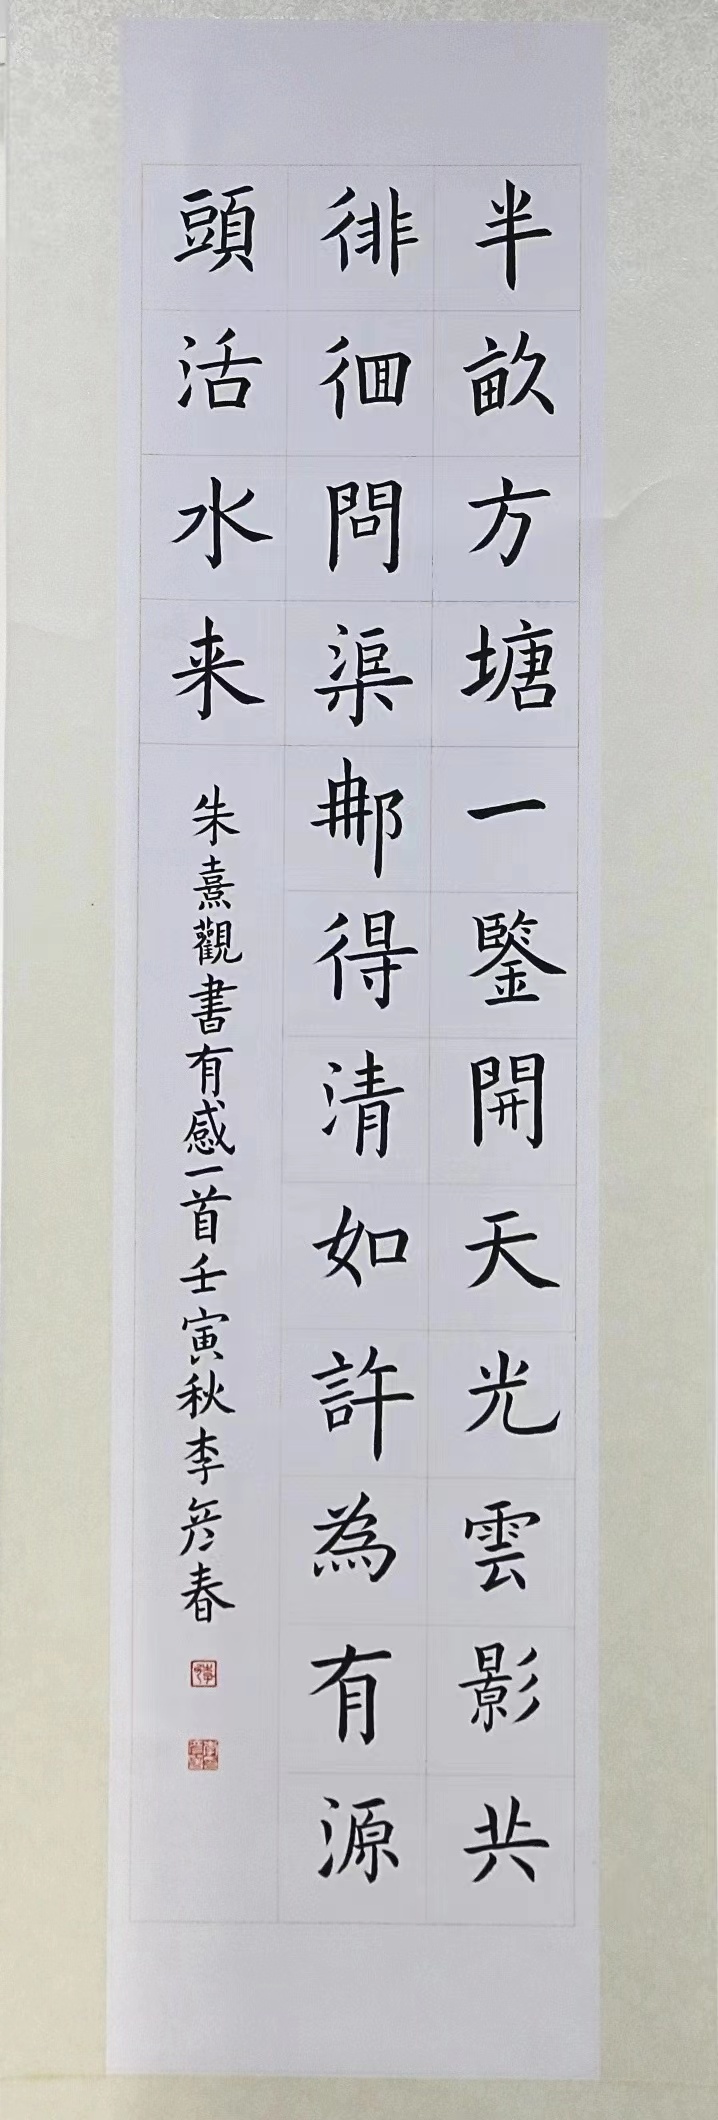 半畝方塘一鑒開天光雲影共
徘徊問渠那得清如許為有源
頭活水来
朱熹觀書有感一首壬寅秋李彦春